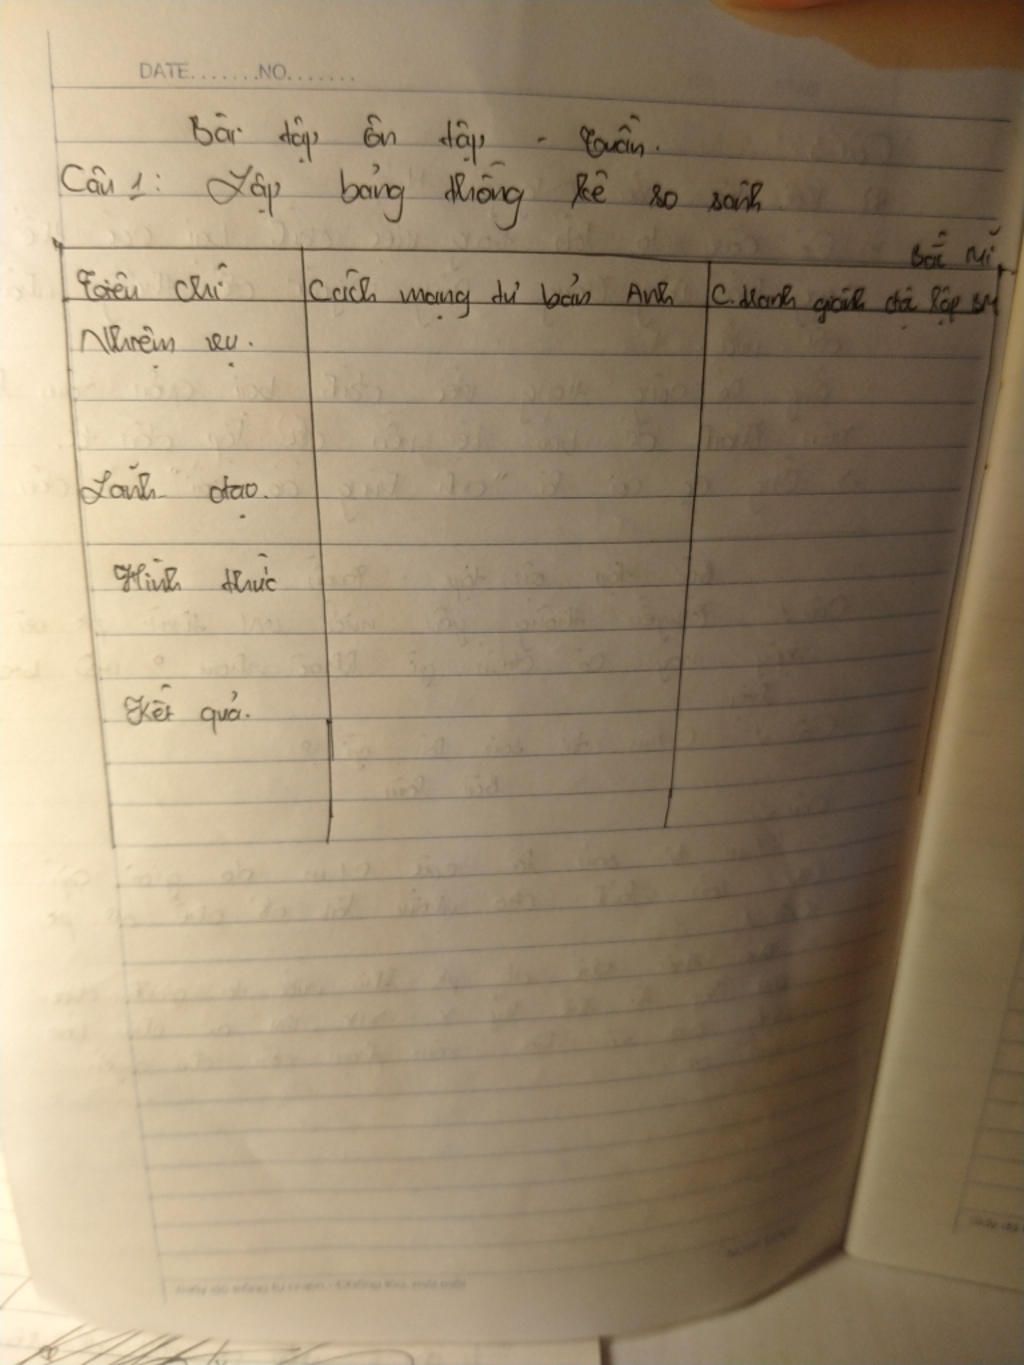 DATE.......NO.......
Bài tập ôn tập - Tuần.
Câu 1: Lập bảng thống kê so sánh.
Bắc Mĩ
Tiêu chí Cách mạng tư bản Anh C.tranh giành độ lập BM
Nhiệm vụ.
Lãnh đạo.
Hình thức
Kết quả.